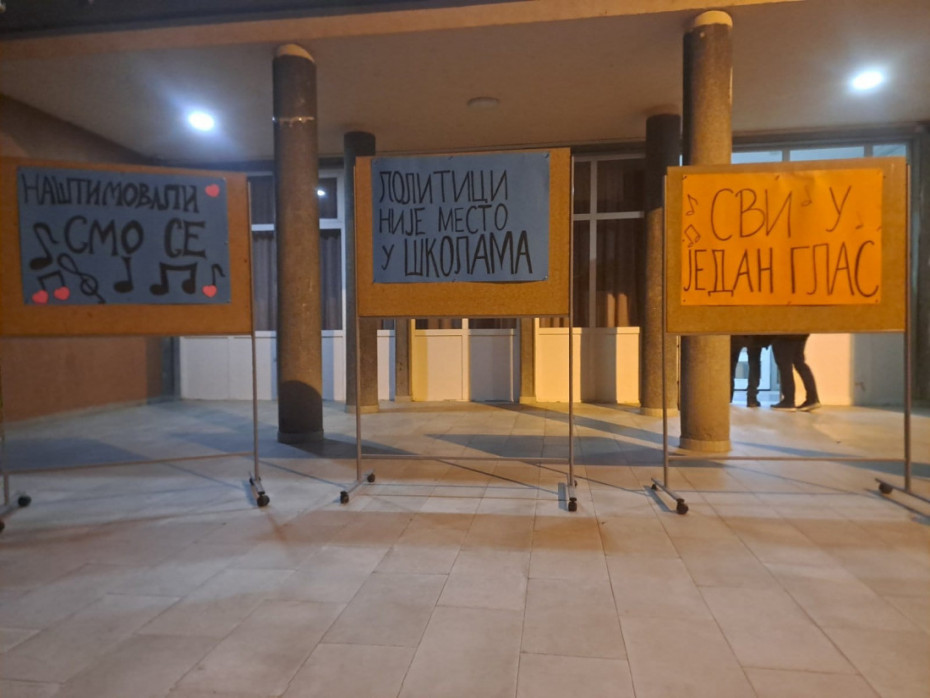 НАШТИМОВАЛИ
СМО СЕ
ПОЛИТИЦИ
НИЈЕ МЕСТО
У ШКОЛАМА
СВИ У
ЈЕДАН ГЛАС